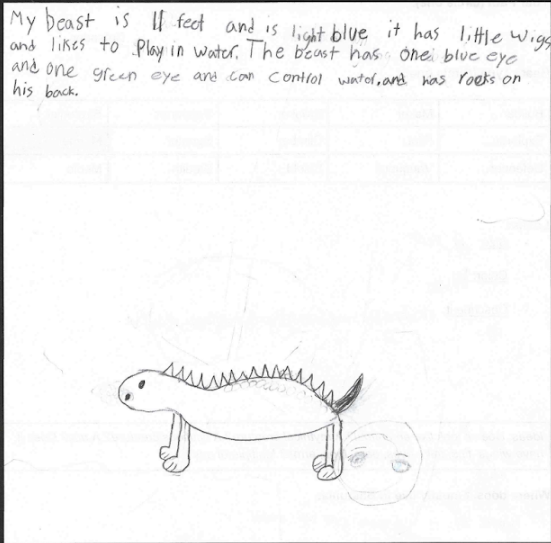 My beast is 11 feet and is light blue it has little wigs
and likes to Play in water. The beast has one blue eye
and one green eye and can control water, and has rocks on
his back.